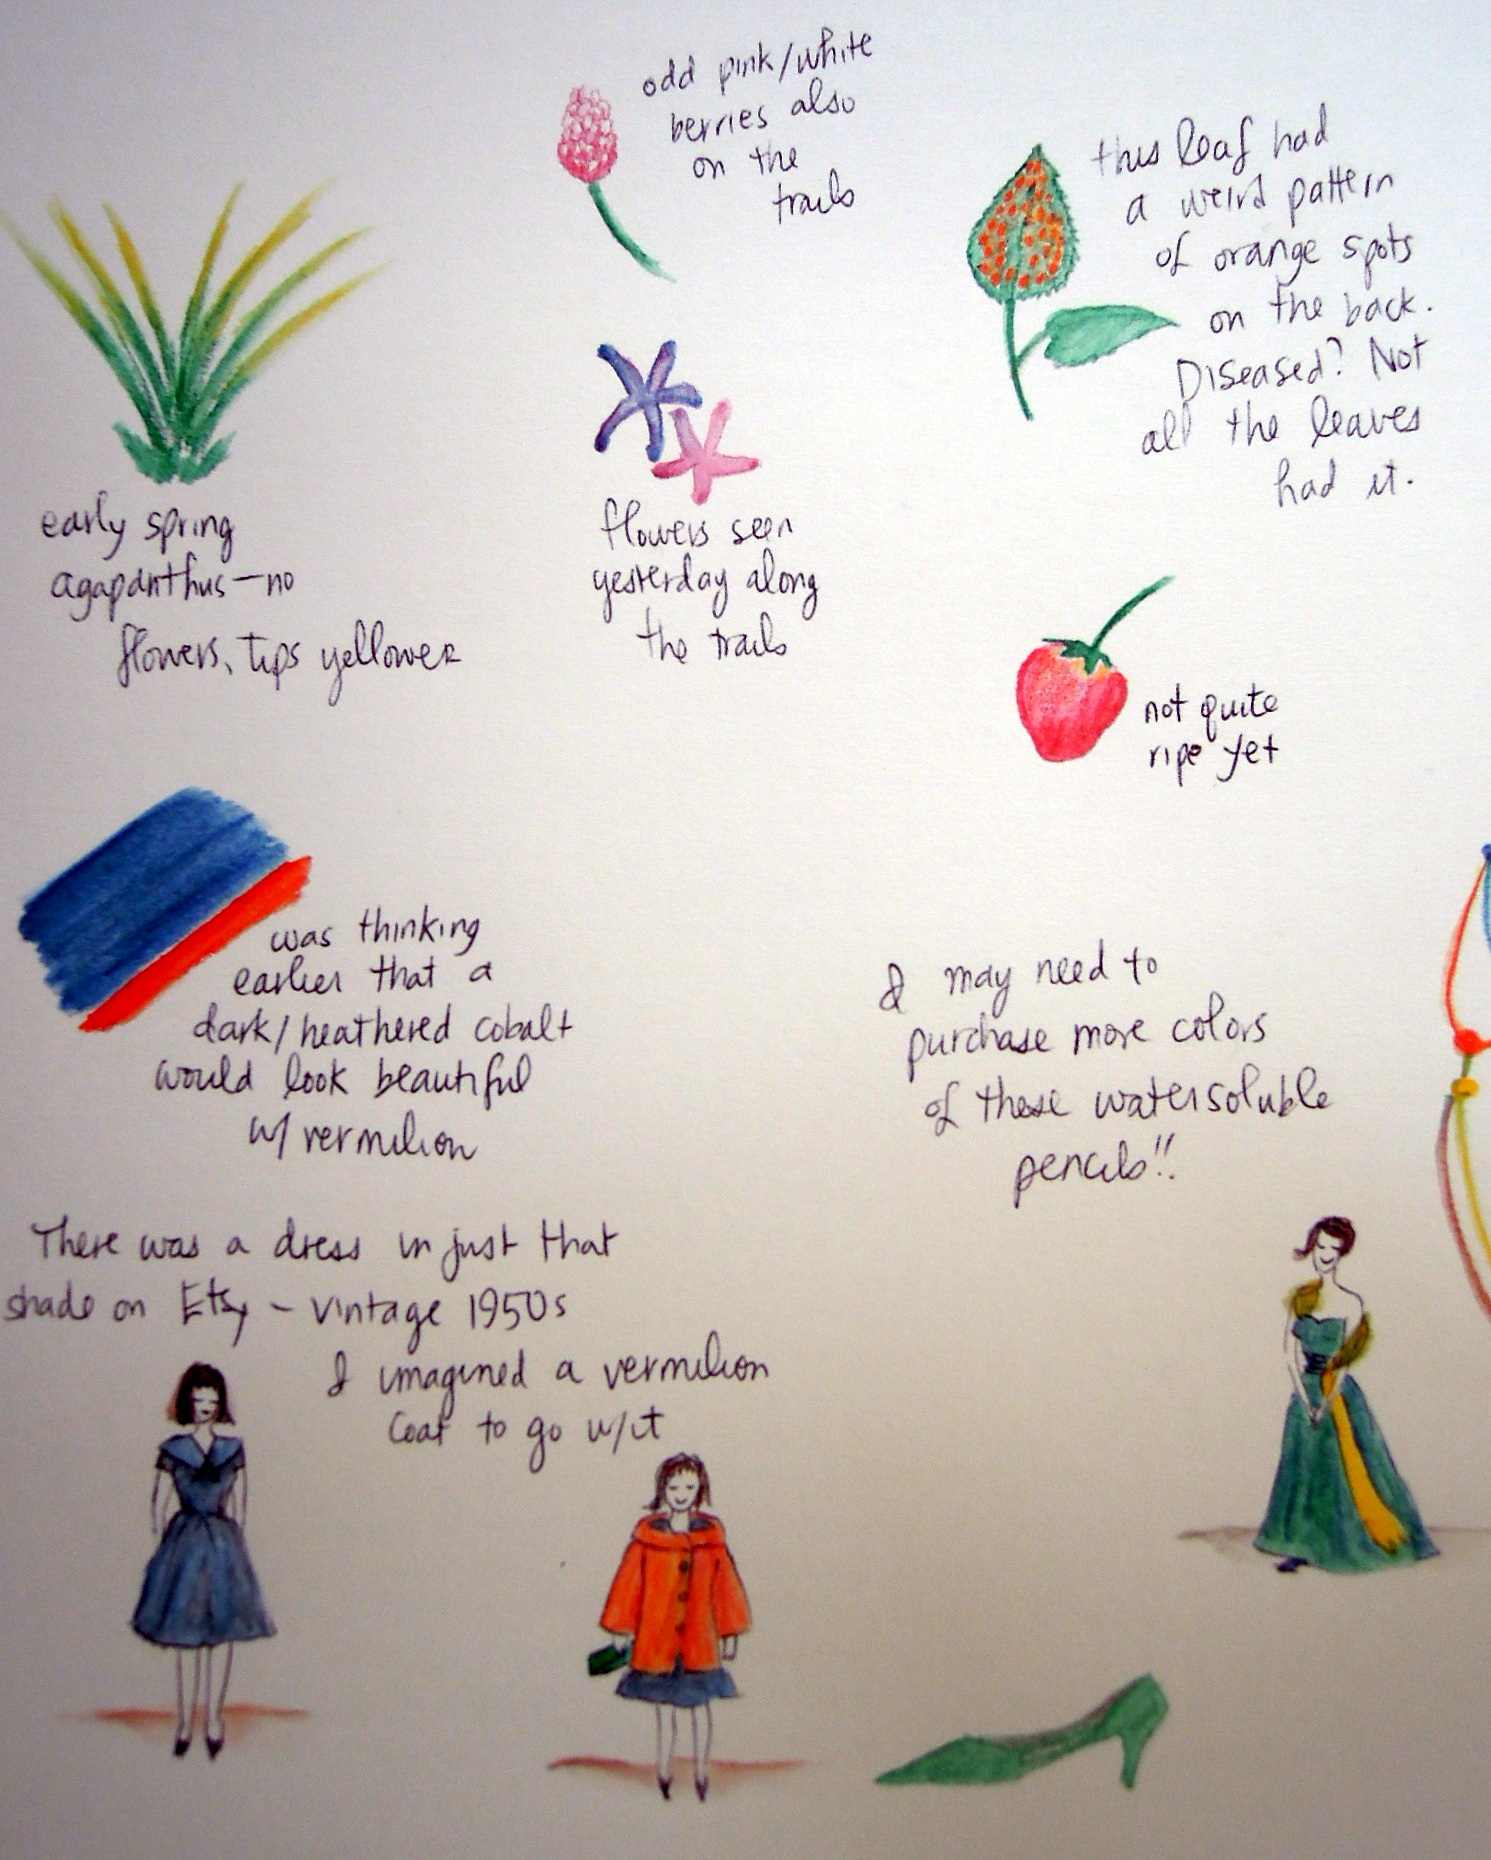 odd pink/white
berries also
on the
trails
this leaf had
a weird pattern
of orange spots
on the back.
Diseased? Not
all the leaves
had it.
early spring
agapanthus—no
flowers, tips yellower
flowers seen
yesterday along
the trails
not quite
ripe yet
was thinking
earlier that a
dark/heathered cobalt
would look beautiful
w/ vermilion
I may need to
purchase more colors
of these watersoluble
pencils!!
There was a dress in just that
shade on Etsy – vintage 1950s
I imagined a vermilion
coat to go w/it